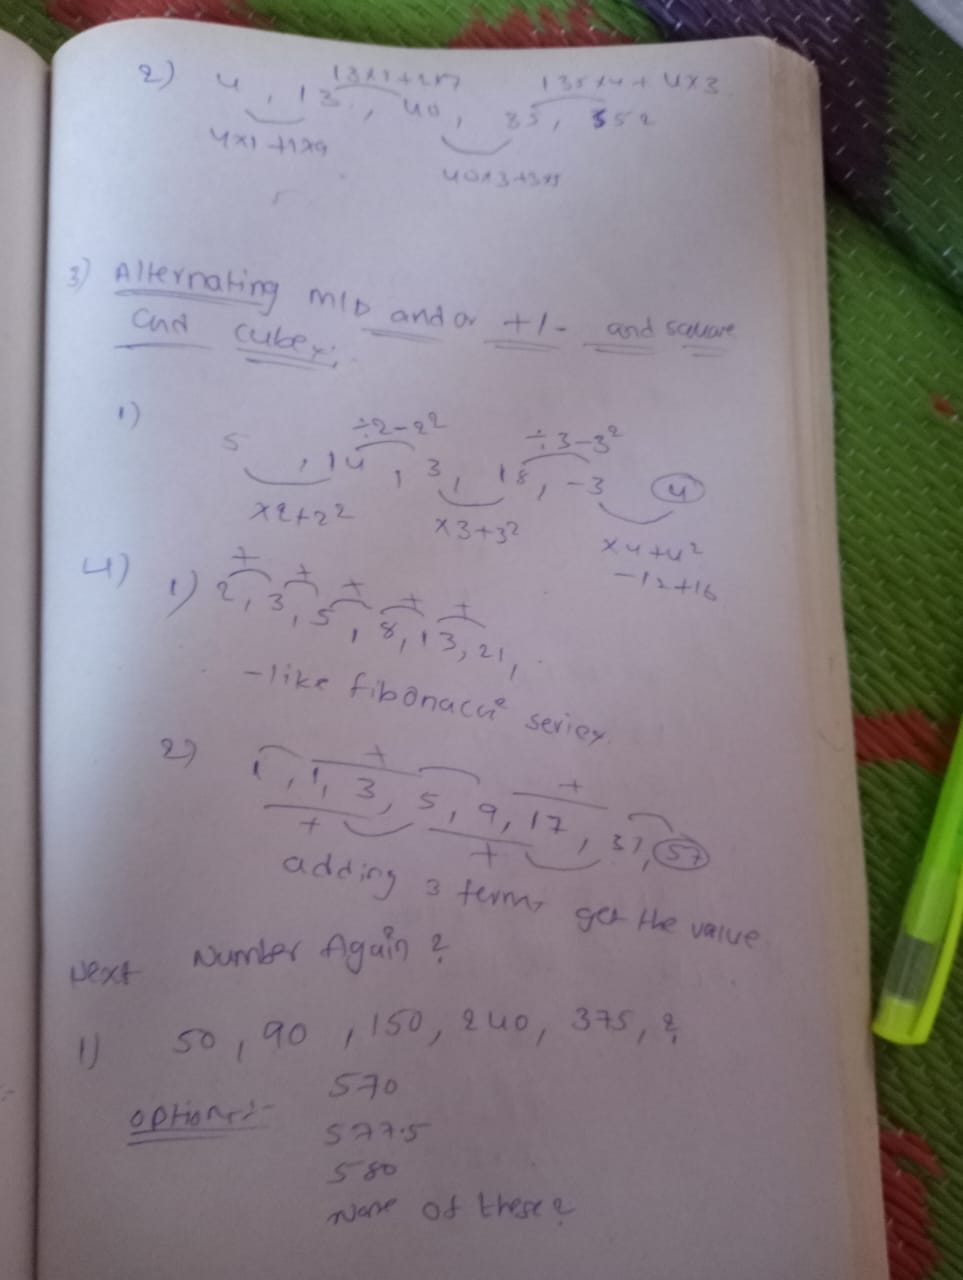 2) 4, 13, 40, 35, 352
13x1+2x7
135x4+4x3
4x1+1x9
40x3+3x5
3) Alternating M/D and or +/- and square
and cube:
1) 5, 14, 3, 18, -3 4
÷2-2²
÷3-3²
x2+2²
x3+3²
x4+4²
-12+16
4) 1) 2, 3, 5, 8, 13, 21,
+ + + + +
-like fibonacci series
2) 1, 1, 3, 5, 9, 17, 31, 57
+ +
+ +
adding 3 terms get the value
Next Number Again?
1) 50, 90, 150, 240, 375, ?
options:- 570
577.5
580
None of these?